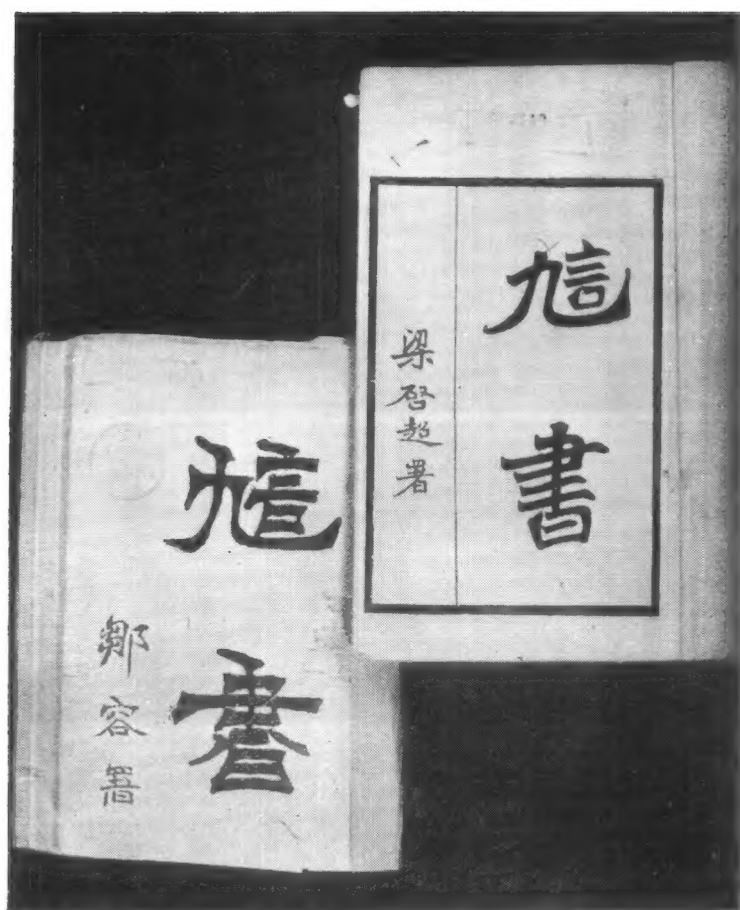 訄書
梁啓超署
訄書
鄒容署